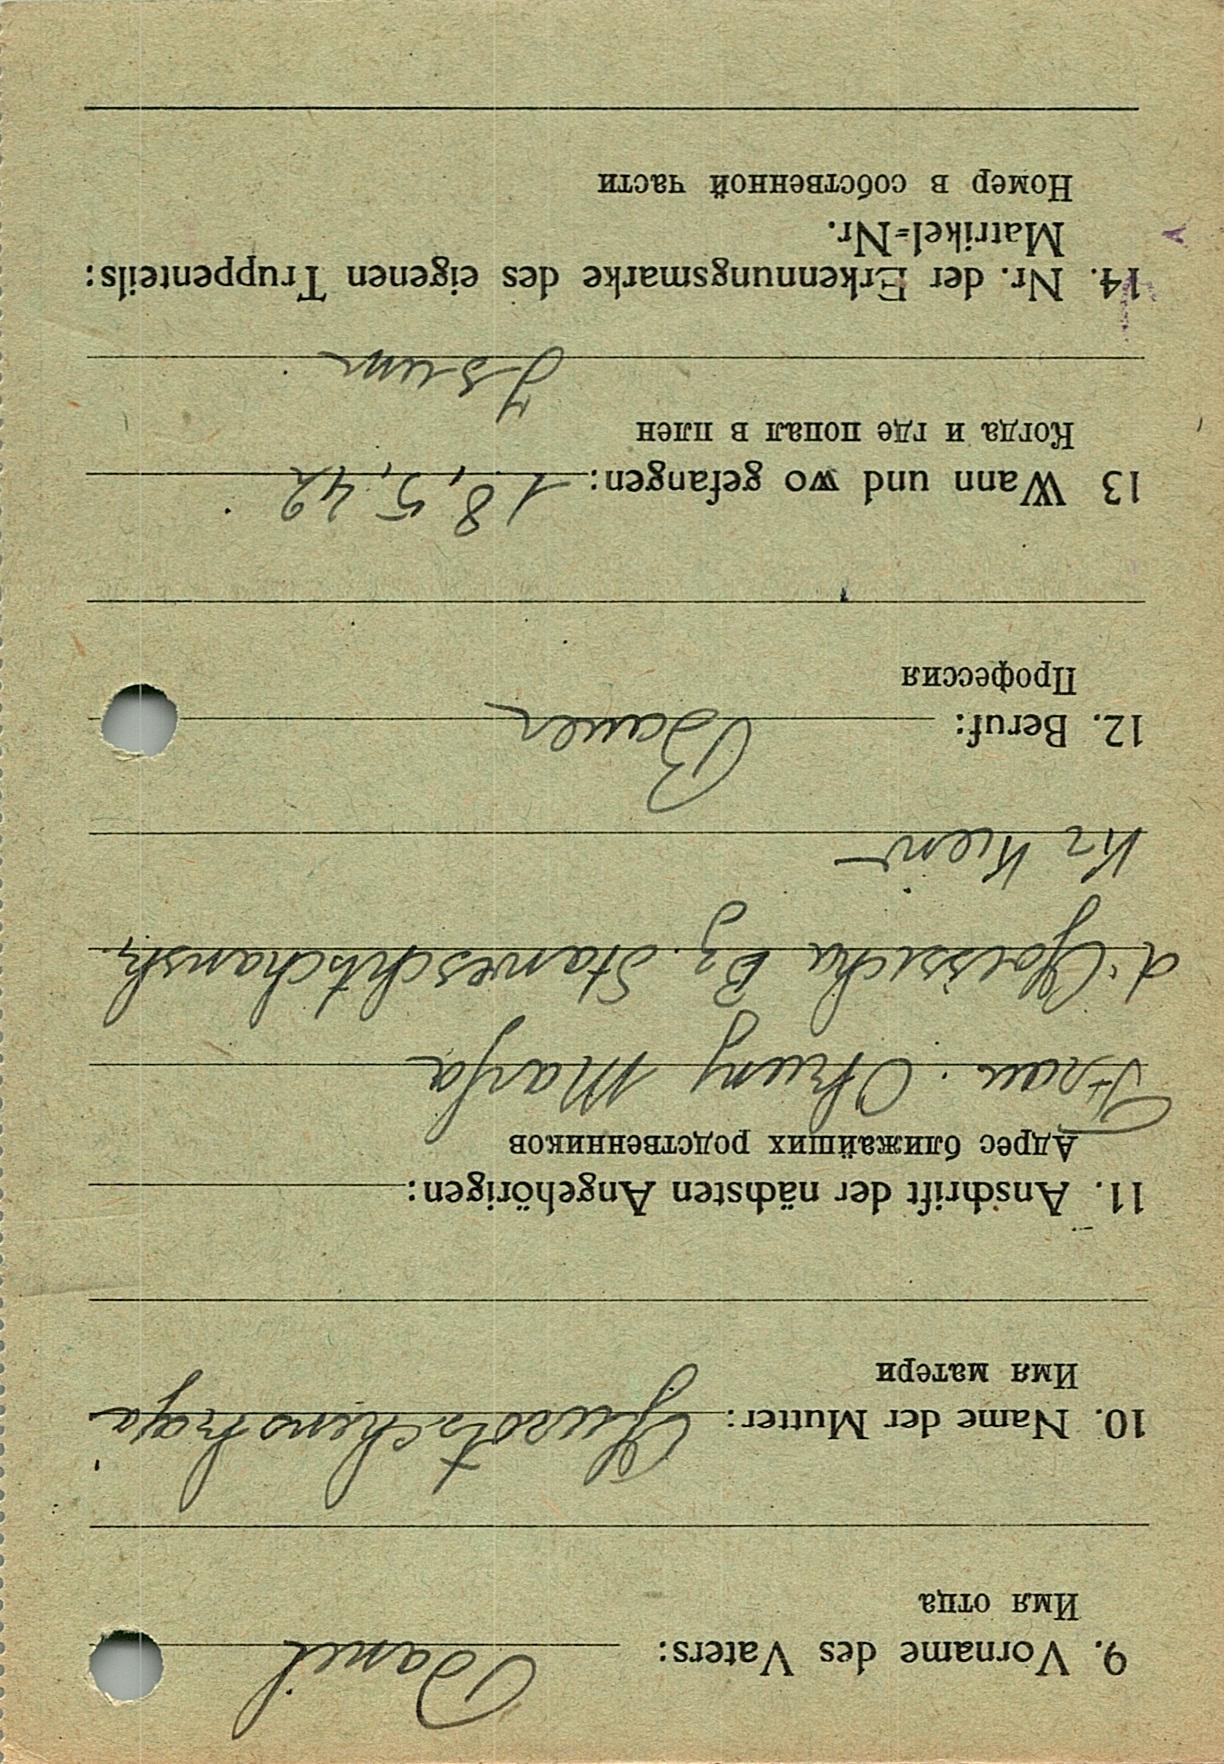 9. Vorname des Vaters: Danil
Имя отца
10. Name der Mutter:
Имя матери
11. Anschrift der nächsten Angehörigen:
Адрес ближайших родственников
Frau. Okuny Marfa
d. Bz.
Kr Kiew
12. Beruf: Bauer
Профессия
13 Wann und wo gefangen: 18,5,42
Когда и где попал в плен
Isum
14. Nr. der Erkennungsmarke des eigenen Truppenteils:
Matrikel=Nr.
Номер в собственной части